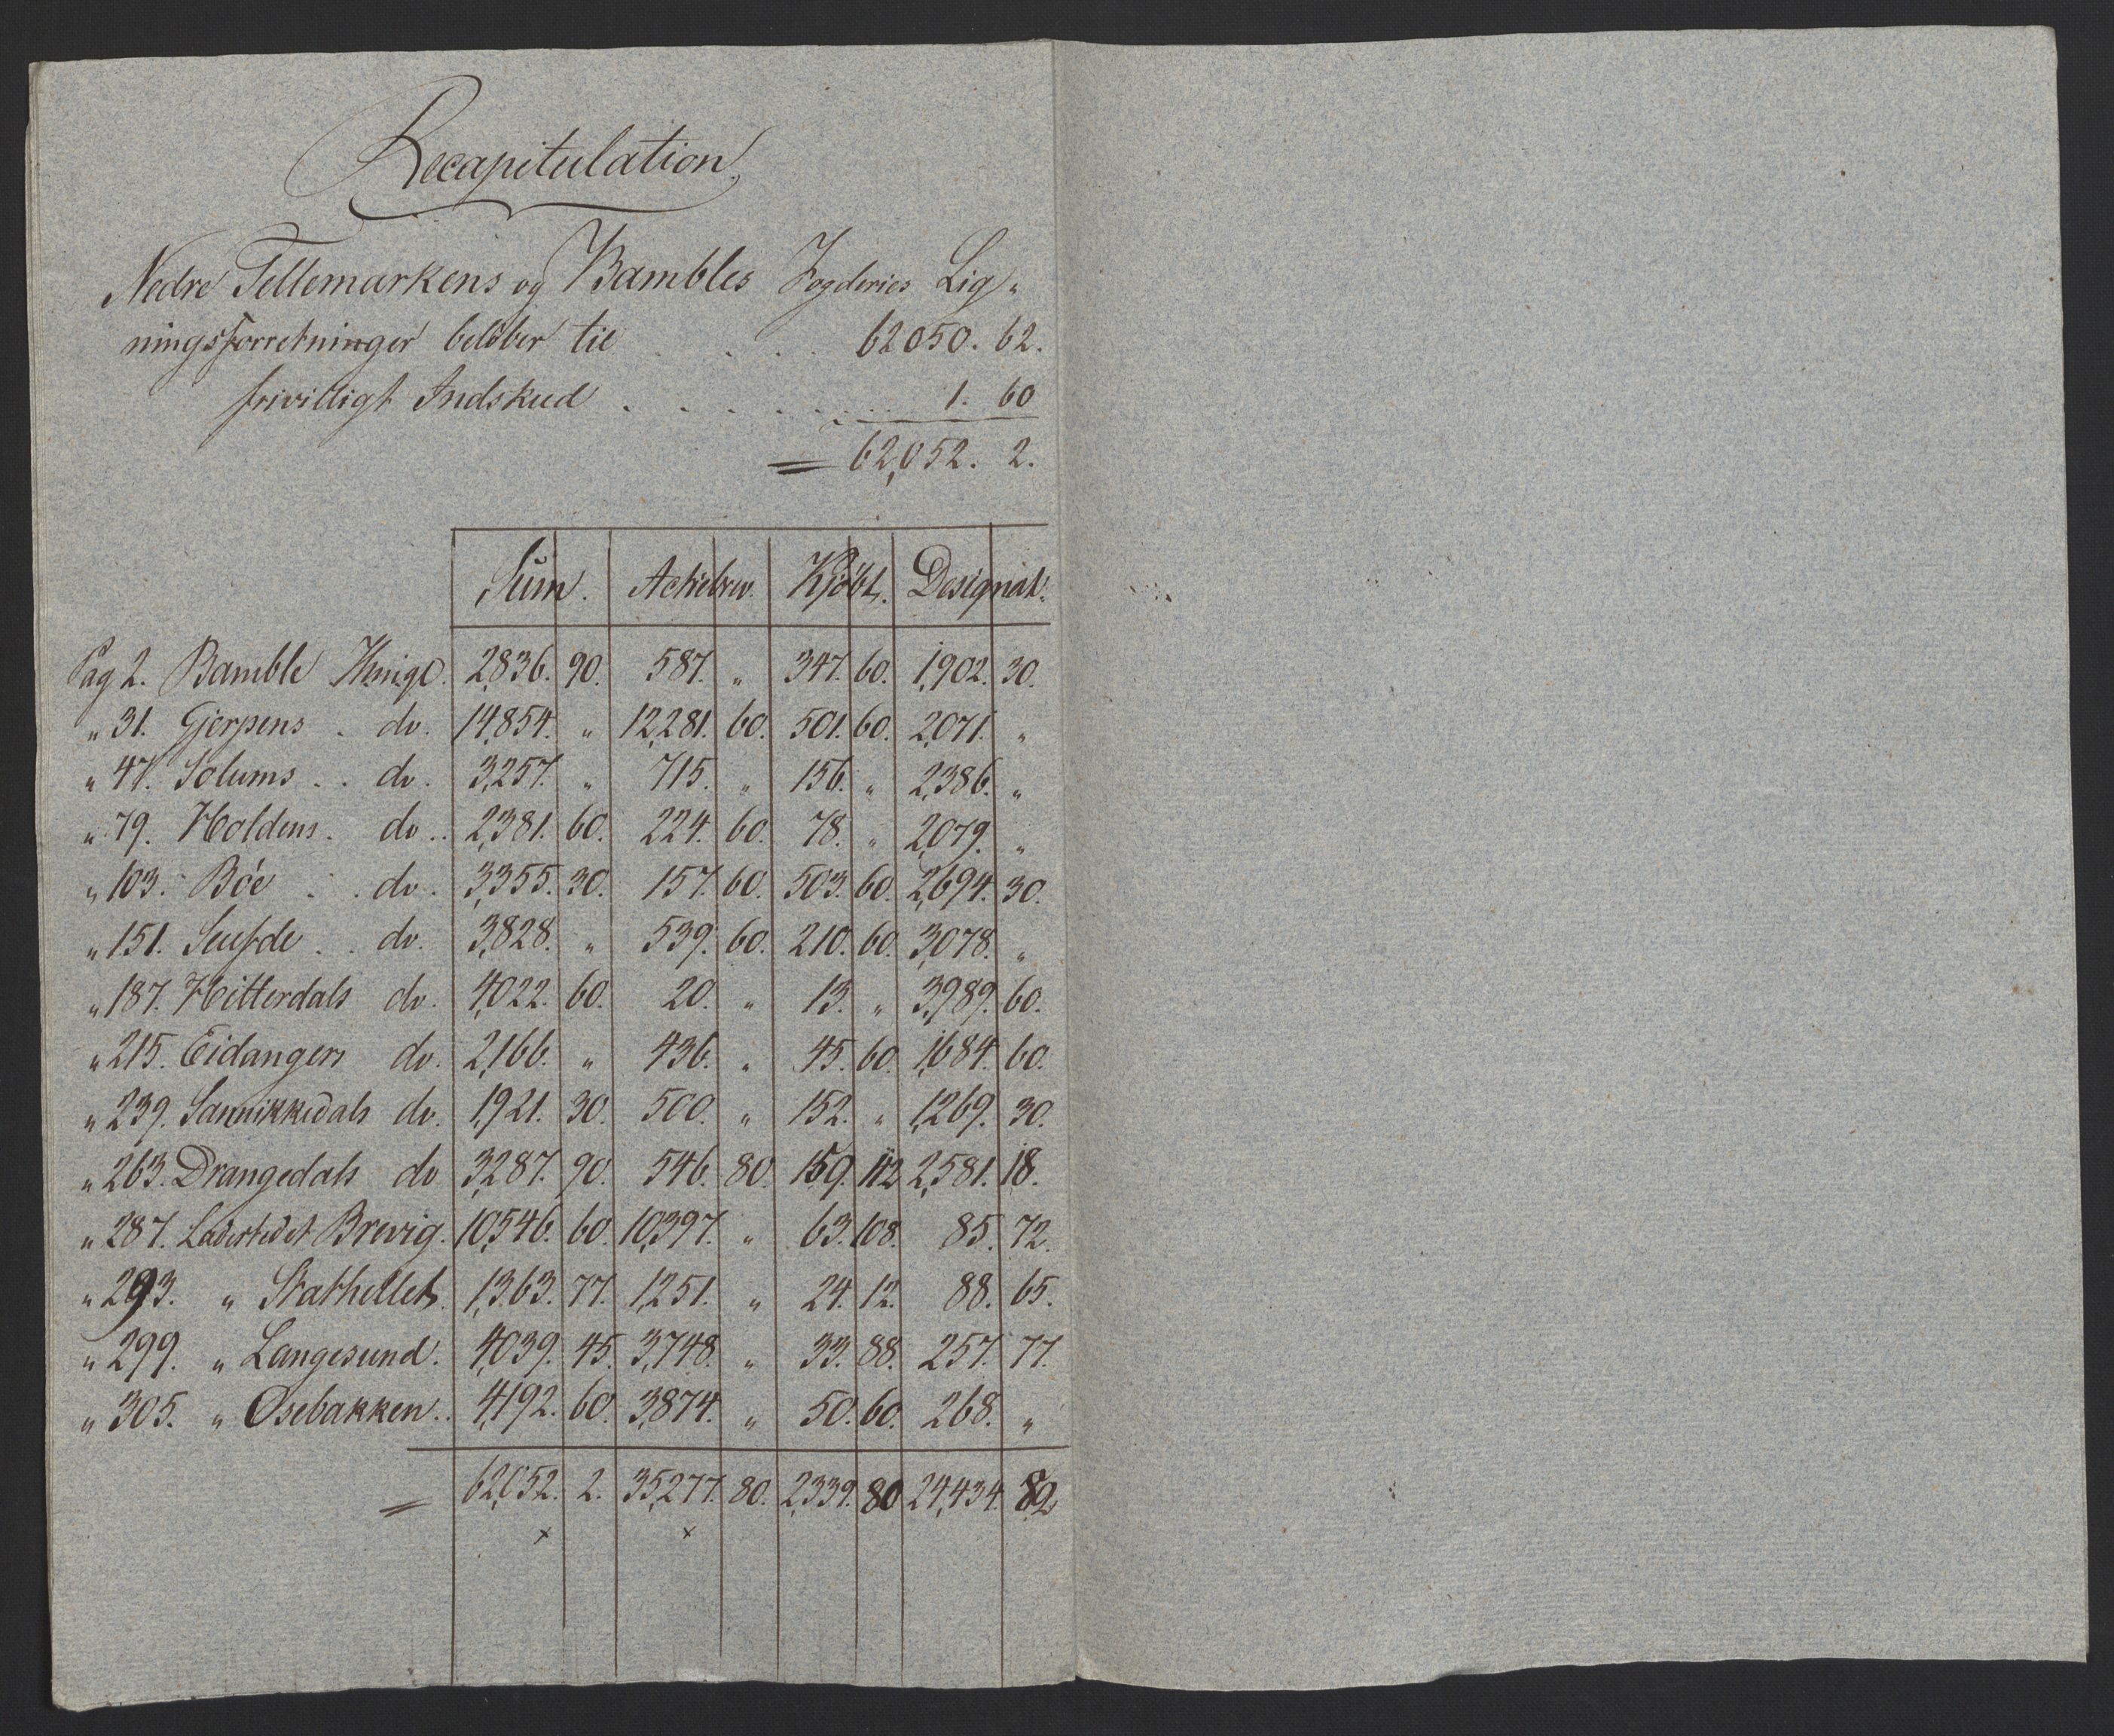 Recapitulation.
Nedre Tellemarkens og Bambles Fogderies Lig„
ningsforretninger beløber til . . . . 62050. 62.
frivilligt Indskud . . . . . . . 1. 60
= 62,052. 2.
Sum. Actiebrev. Kjöbt. Designat.
Pag 2. Bamble Thingl. 2,836. 90. 587. „ 347. 60. 1,902. 30.
„ 31. Gjerpens . do. 14,854. „ 12,281. 60. 501. 60. 2,071. „
„ 47. Solums . . do. 3,257. „ 715. „ 156. „ 2,386. „
„ 79. Holdens . do . . 2,381. 60. 224. 60. 78. „ 2,079. „
„ 103. Böe . . do. 3,355. 30. 157. 60. 503. 60. 2,694. 30.
„ 151. Seufde . . do. 3,828. „ 539. 60. 210. 60. 3,078. „
„ 187. Hitterdals do. 4,022. 60. 20. „ 13. „ 3,989. 60.
„ 215. Eidangers do. 2,166. „ 436. „ 45. 60. 1,684. 60.
„ 239. Sannikkedals do. 1,921. 30. 500. „ 152. „ 1,269. 30.
„ 263. Drangedals do 3,287. 90. 546. 80. 159. 112 2,581. 18.
„ 287. Ladestedet Brevig. 10,546. 60. 10,397. „ 63. 108. 85. 72.
„ 293. „ Stathellet. 1,363. 77. 1,251. „ 24. 12. 88. 65.
„ 299. „ Langesund. 4,039. 45. 3,748. „ 33. 88. 257. 77.
„ 305. „ Osebakken . . 4,192. 60. 3,874. „ 50. 60. 268. „
= 62,052. 2. 35,277. 80. 2,339. 80 24,434. 82
x x